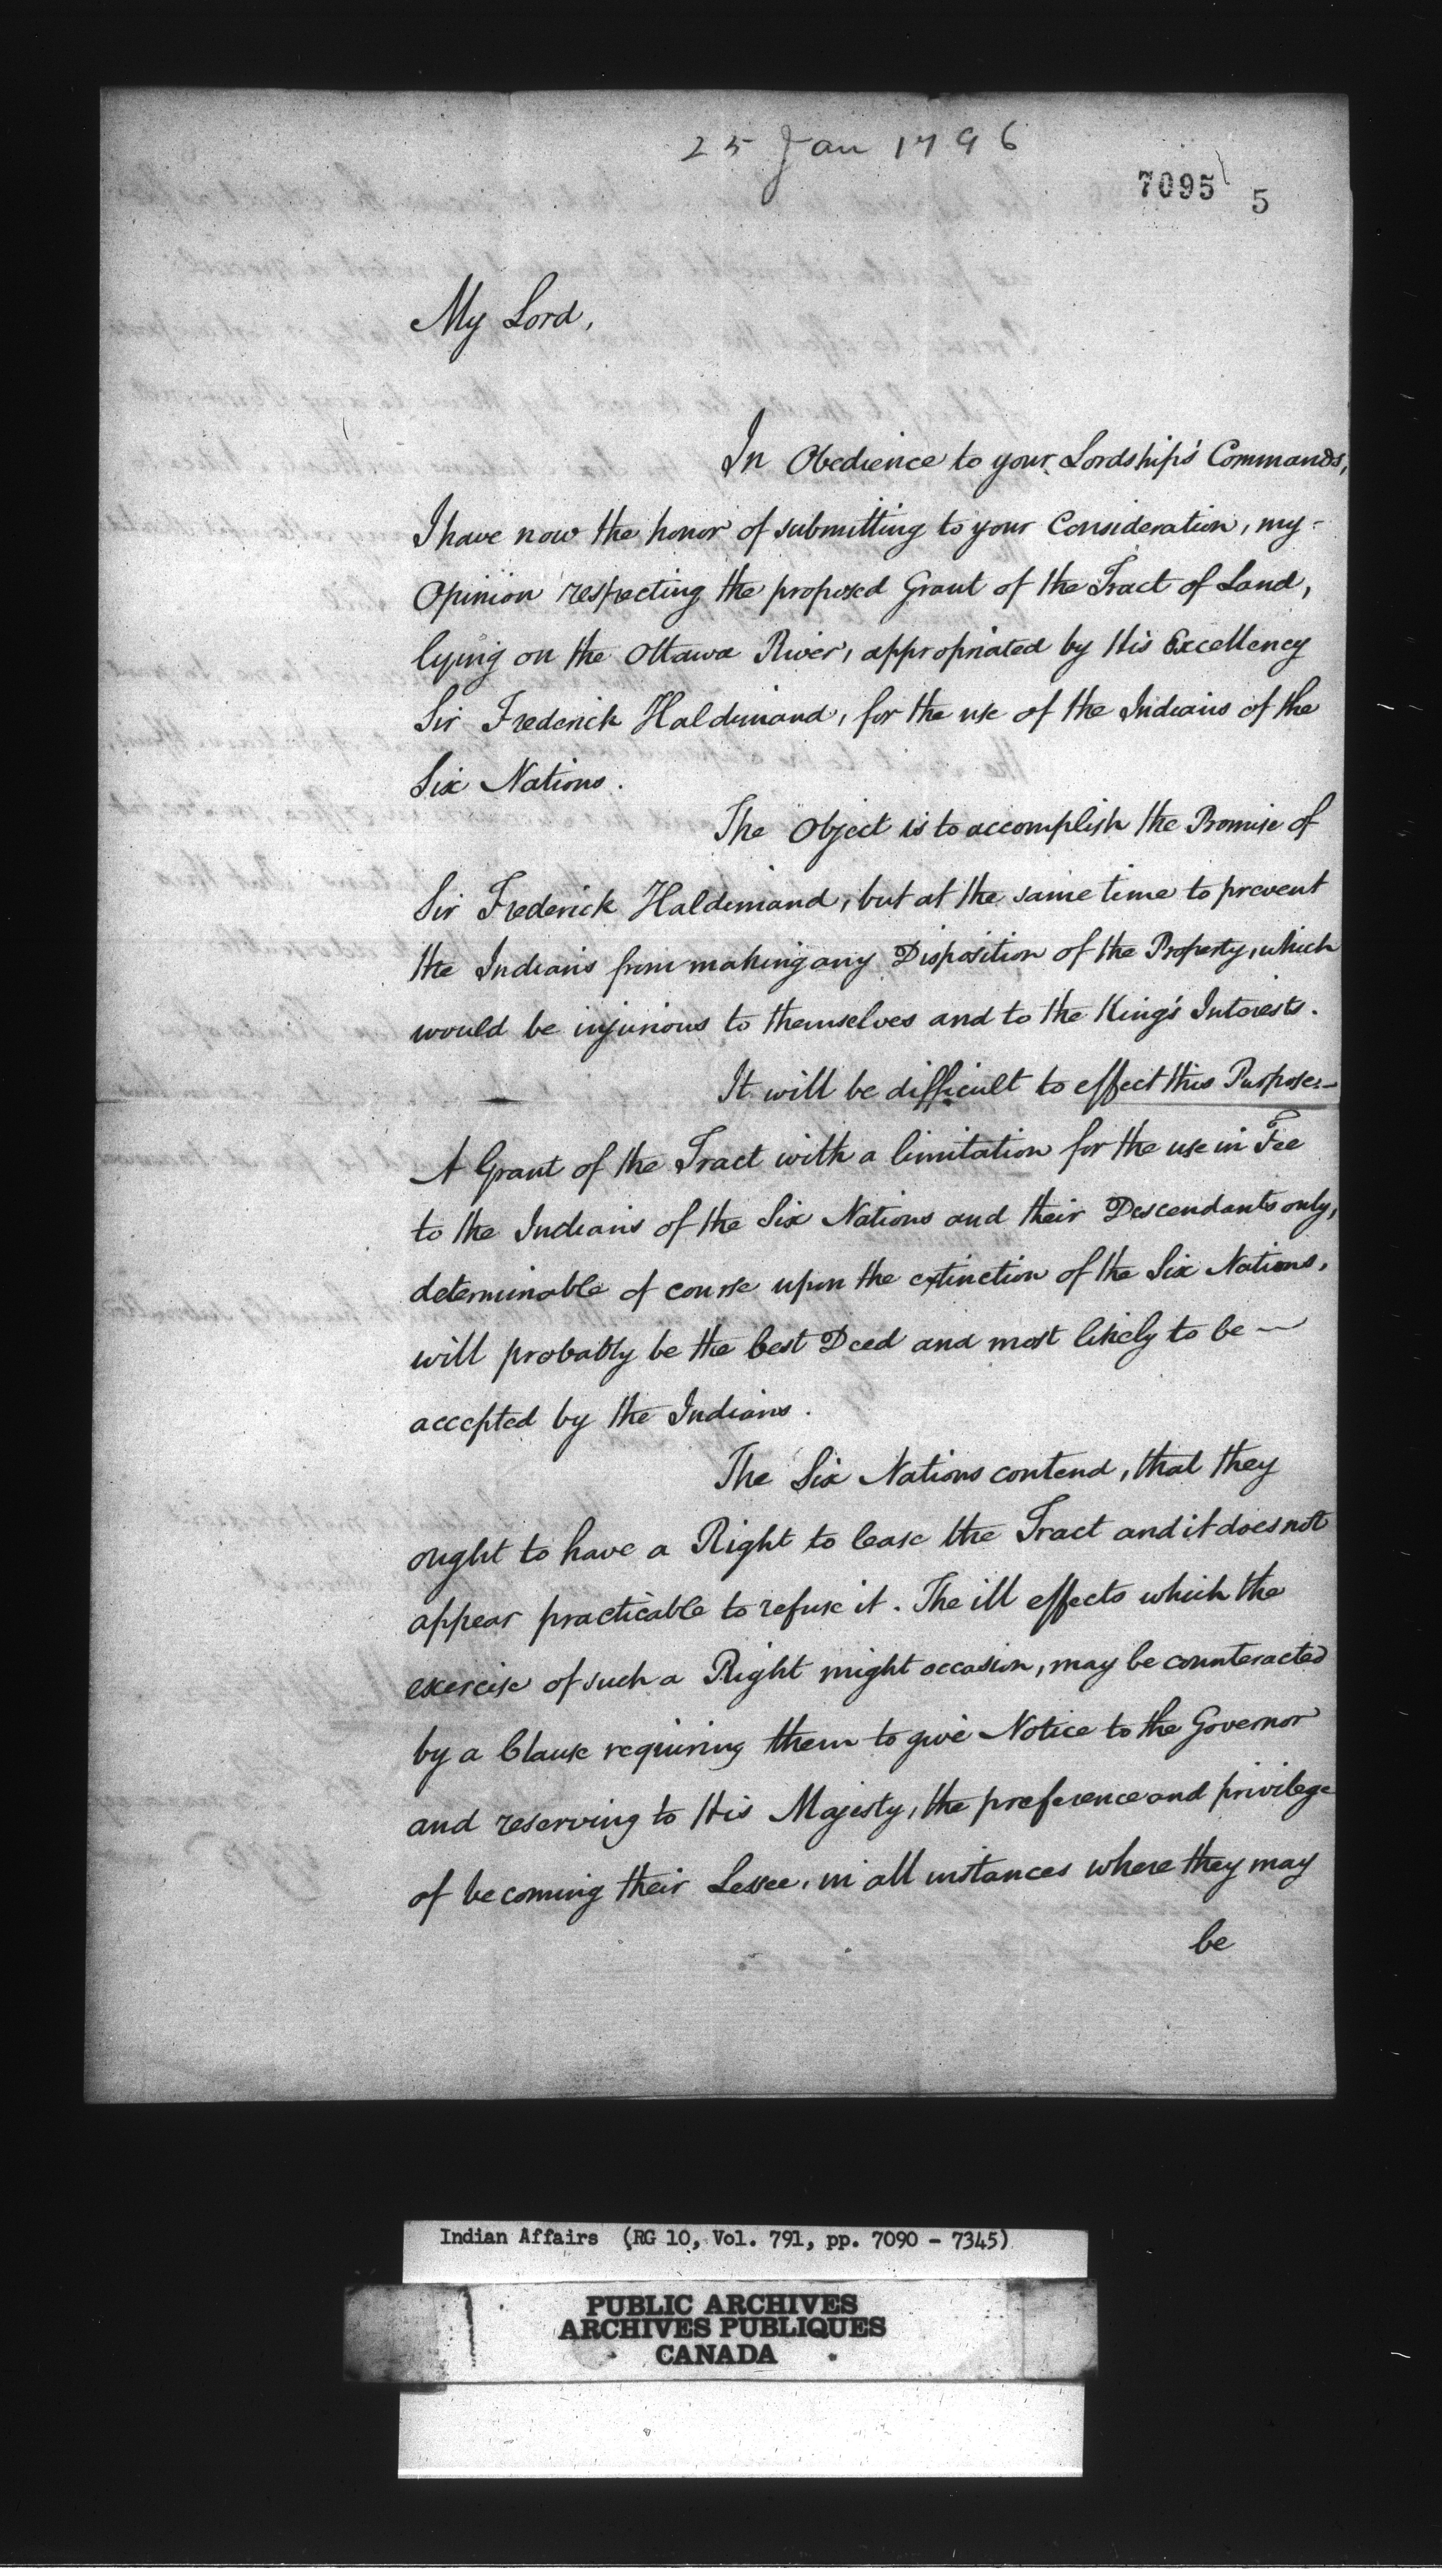 25 Jan 1796
7095 5
My Lord,
In Obedience to your Lordship's Commands,
I have now the honor of submitting to your Consideration, my-
Opinion respecting the proposed Grant of the Tract of Land,
lying on the Ottawa River, appropriated by His Excellency
Sir Frederick Haldimand, for the use of the Indians of the
Six Nations.
The Object is to accomplish the Promise of
Sir Frederick Haldimand, but at the same time to prevent
the Indians from making any Disposition of the Property, which
would be injurious to themselves and to the King's Interests.
It will be difficult to effect this Purpose:—
A Grant of the Tract with a limitation for the use in Fee
to the Indians of the Six Nations and their Descendants only,
determinable of course upon the extinction of the Six Nations,
will probably be the best Deed and most likely to be —
accepted by the Indians.
The Six Nations contend, that they
ought to have a Right to lease the Tract and it does not
appear practicable to refuse it. The ill effects which the
exercise of such a Right might occasion, may be counteracted
by a Clause requiring them to give Notice to the Governor
and reserving to His Majesty, the preference and privilege
of becoming their Lessee, in all instances where they may
be
Indian Affairs (RG 10, Vol. 791, pp. 7090 - 7345)
PUBLIC ARCHIVES
ARCHIVES PUBLIQUES
CANADA